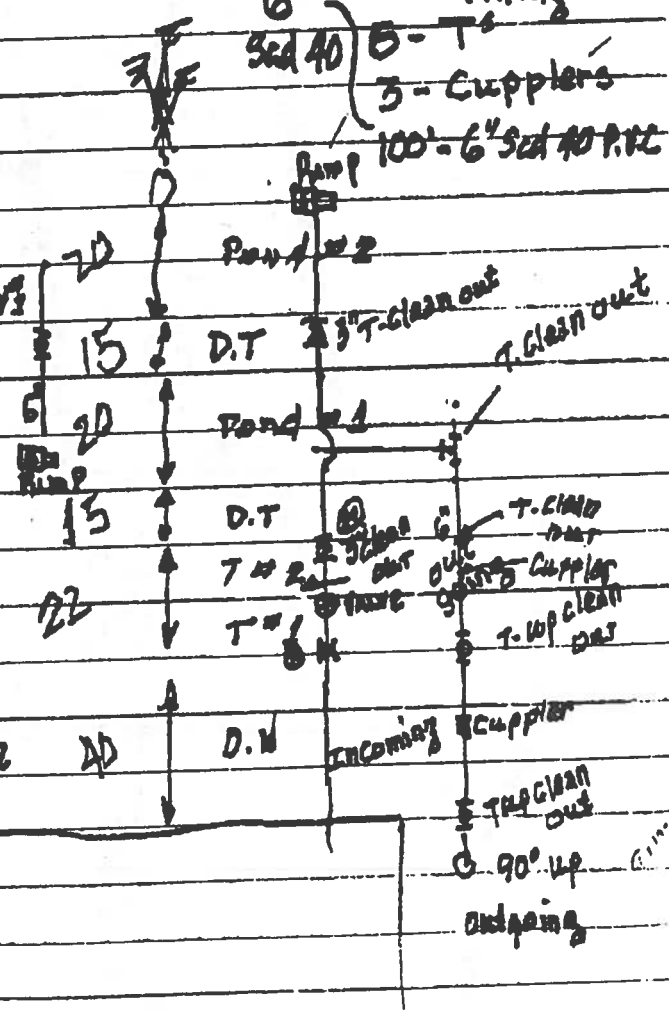 6"
Scd 40
5 - T's
3 - Cupplers
100' - 6" Scd 40 P.V.C
Pump
20
Pond #2
3" T-Clean out
T. Clean out
15
D.T
6"
20
Pond #1
Pump
15
D.T
6"
T-Clean out
3" Clean out
T #2
Valve
Cuppler
22
T #1
T-up Clean out
D.W
Incoming
Cuppler
T up Clean out
90° up
outgoing